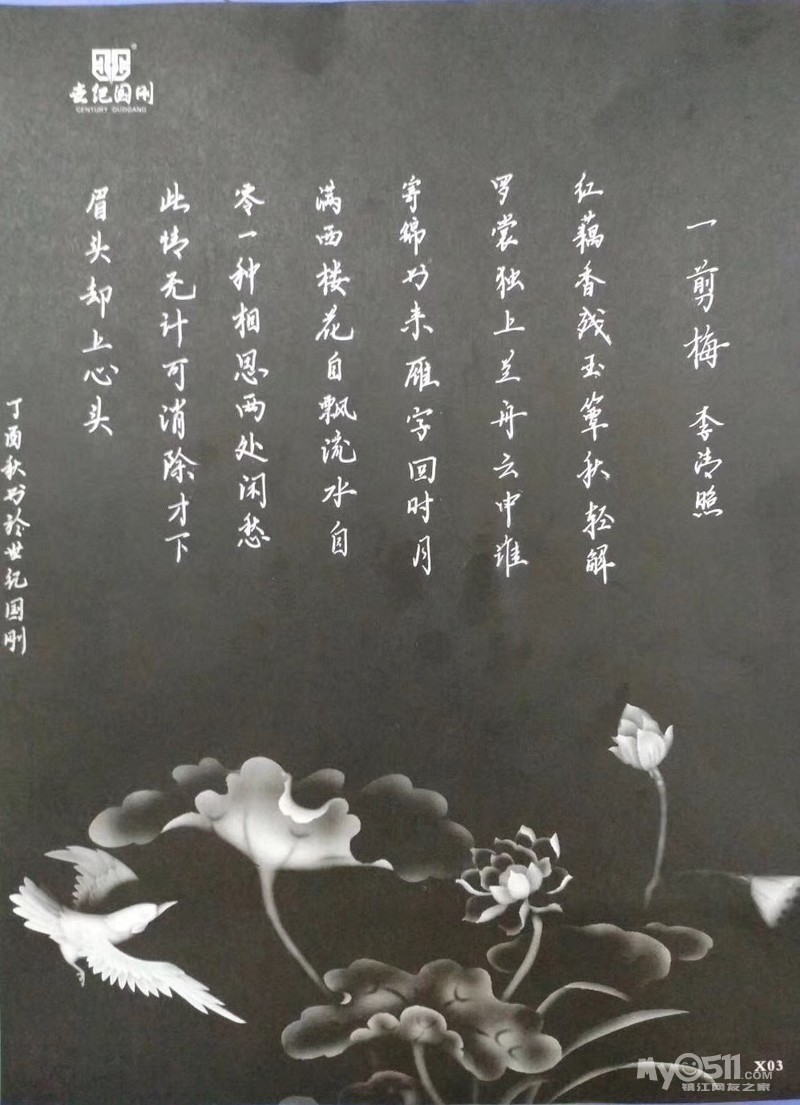 世纪国刚
CENTURY GUOGANG
一剪梅 李清照
红藕香残玉簟秋轻解
罗裳独上兰舟云中谁
寄锦书来雁字回时月
满西楼花自飘流水自
零一种相思两处闲愁
此情无计可消除才下
眉头却上心头
丁酉秋书于世纪国刚
X03
My0511.com
镇江网友之家